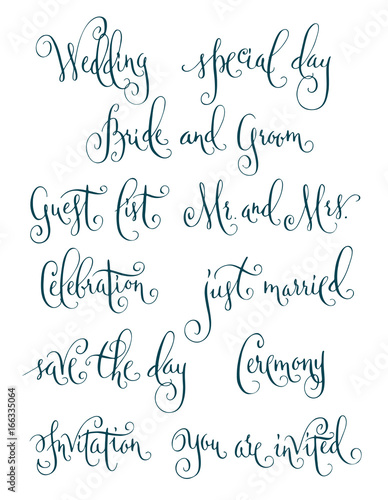 Wedding special day
Bride and Groom
Guest list Mr. and Mrs.
Celebration just married
save the day Ceremony
Invitation You are invited
Adobe Stock | #166335064